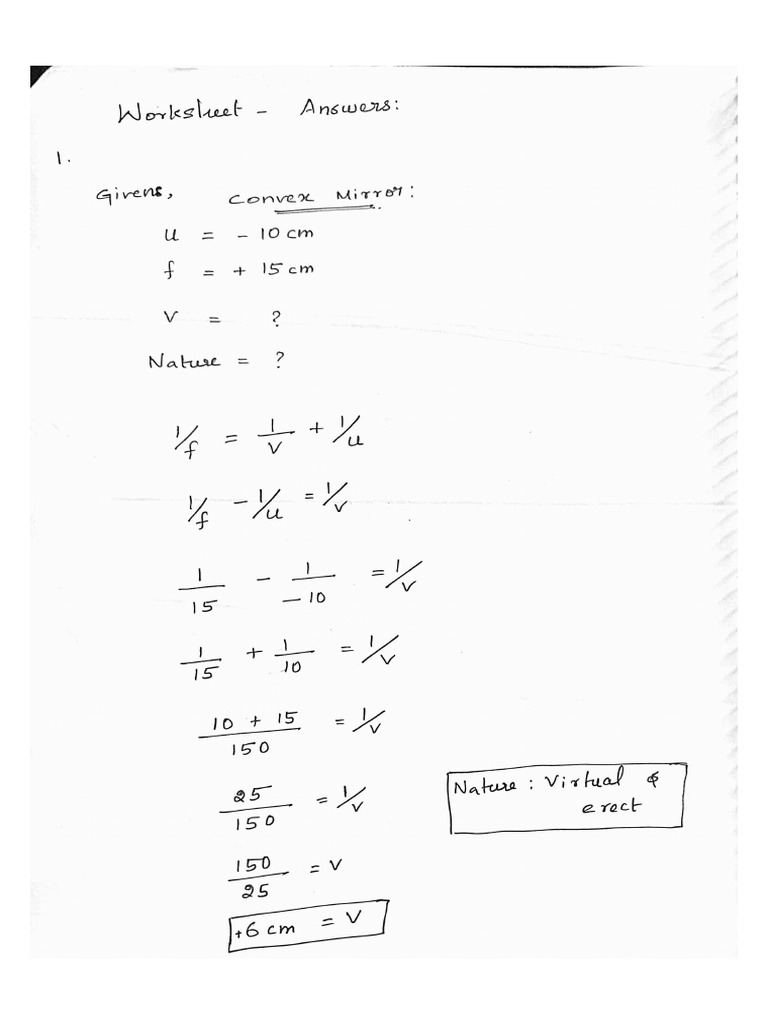 Worksheet - Answers:
1.
Givens, Convex Mirror:
u = - 10 cm
f = + 15 cm
v = ?
Nature = ?
1/f = 1/v + 1/u
1/f - 1/u = 1/v
1/15 - 1/-10 = 1/v
1/15 + 1/10 = 1/v
10 + 15/150 = 1/v
25/150 = 1/v
Nature : Virtual &
erect
150/25 = v
+6 cm = v